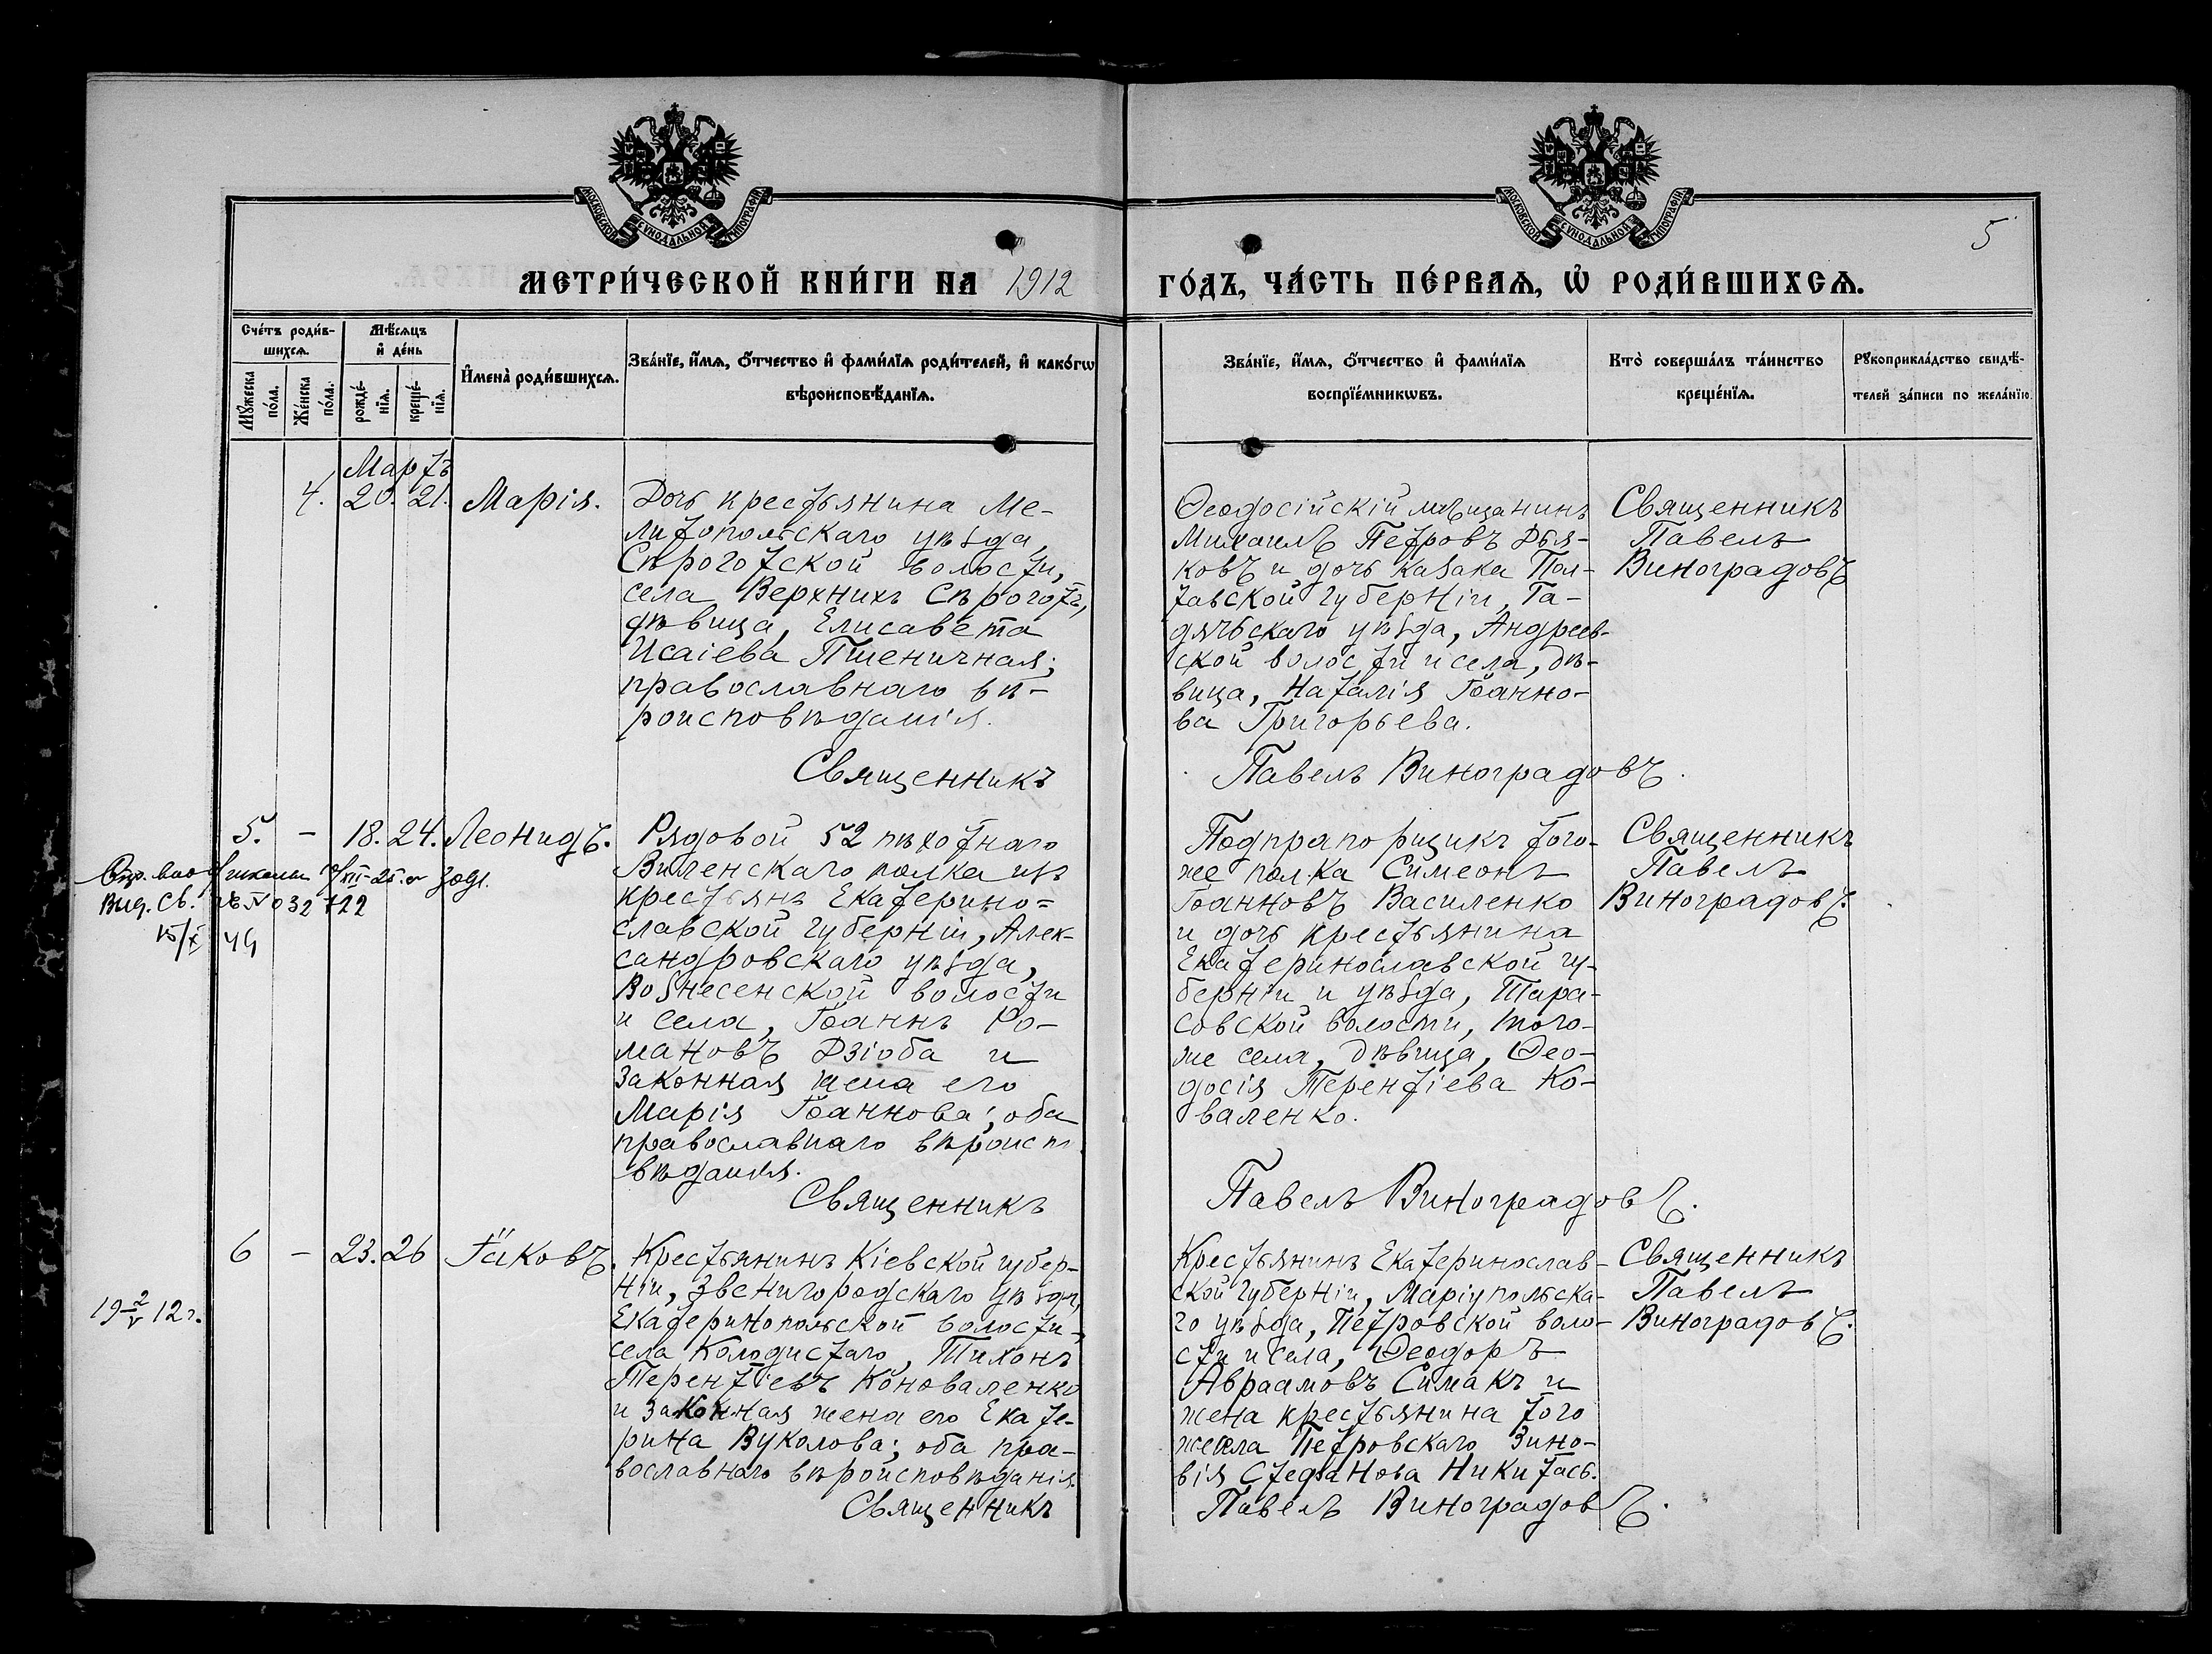 МОСКОВСКОЙ СѴНОДАЛЬНОЙ ТИПОГРАФІИ
МОСКОВСКОЙ СѴНОДАЛЬНОЙ ТИПОГРАФІИ
5
МЕТРИ́ЧЕСКОЙ КНИ́ГИ НА 1912
ГО́ДЪ, ЧА́СТЬ ПЕ́РВАѦ, Ѡ҆ РОДИ́ВШИХСѦ.
Сче́тъ роди́в-
шихсѧ.
Мꙋ́жеска
по́ла.
Же́нска
по́ла.
Мѣ́сѧцъ
и҆ де́нь
рожде́-
нїѧ.
креще́-
нїѧ.
И҆мена̀ роди́вшихсѧ.
Зва́нїе, и҆́мѧ, ѻ҆́тчество и҆ фами́лїѧ роди́телей, и҆ како́гѡ
вѣроисповѣ́данїѧ.
Зва́нїе, и҆́мѧ, ѻ҆́тчество и҆ фами́лїѧ
воспрїе́мникѡвъ.
Кто̀ соверша́лъ та́инство
креще́нїѧ.
Рꙋкоприкла́дство свидѣ́-
телей за́писи по жела́нїю.
Мартъ
4. 20. 21. Марія.
Дочь крестьянина Ме-
литопольскаго уѣзда,
Сѣрогозской волости,
села Верхнихъ Сѣрогозъ,
дѣвица, Елисавета
Исаіева Пшеничная;
православнаго вѣ-
роисповѣданія.
Священникъ
Ѳеодосійскій мѣщанинъ
Михаилъ Петровъ Дья-
ковъ и дочь казака Пол-
тавской губерніи, Га-
дячьскаго уѣзда, Андреев-
ской волости и села, дѣ-
вица, Наталія Іоанно-
ва Григорьева.
Павелъ Виноградовъ.
Священникъ
Павелъ
Виноградовъ
5. - 18. 24. Леонидъ.
Вид. Св. № 032722
49
Рядовой 52 пѣхотнаго
Виленскаго полка изъ
крестьянъ Екатерино-
славской губерніи, Алек-
сандровскаго уѣзда,
Вознесенской волости
и села, Іоаннъ Ро-
мановъ Дзіоба и
законная жена его
Марія Іоаннова; оба
православнаго вѣроиспо
вѣданія.
Священникъ
Подпрапорщикъ того-
же полка Симеонъ
Іоанновъ Василенко
и дочь крестьянина
Екатеринославской гу-
берніи и уѣзда, Тара-
совской волости, того-
же села, дѣвица, Ѳео-
досія Терентіева Ко-
валенко.
Павелъ Виноградовъ.
Священникъ
Павелъ
Виноградовъ.
6 - 23. 26 Іаковъ.
19 2/V 12 г.
Крестьянинъ Кіевской губер-
ніи, Звенигородскаго уѣзда,
Екатеринопольской волости,
села Колодистаго, Тихонъ
Терентіевъ Коноваленко
и законная жена его Екате-
рина Вуколова; оба пра-
вославнаго вѣроисповѣданія.
Священникъ
Крестьянинъ Екатеринослав-
ской губерніи, Маріупольска-
го уѣзда, Петровской воло-
сти и села, Ѳеодоръ
Авраамовъ Симакъ и
жена крестьянина того
же села Петровскаго Зино-
вія Стефанова Никитась.
Павелъ Виноградовъ.
Священникъ
Павелъ
Виноградовъ.